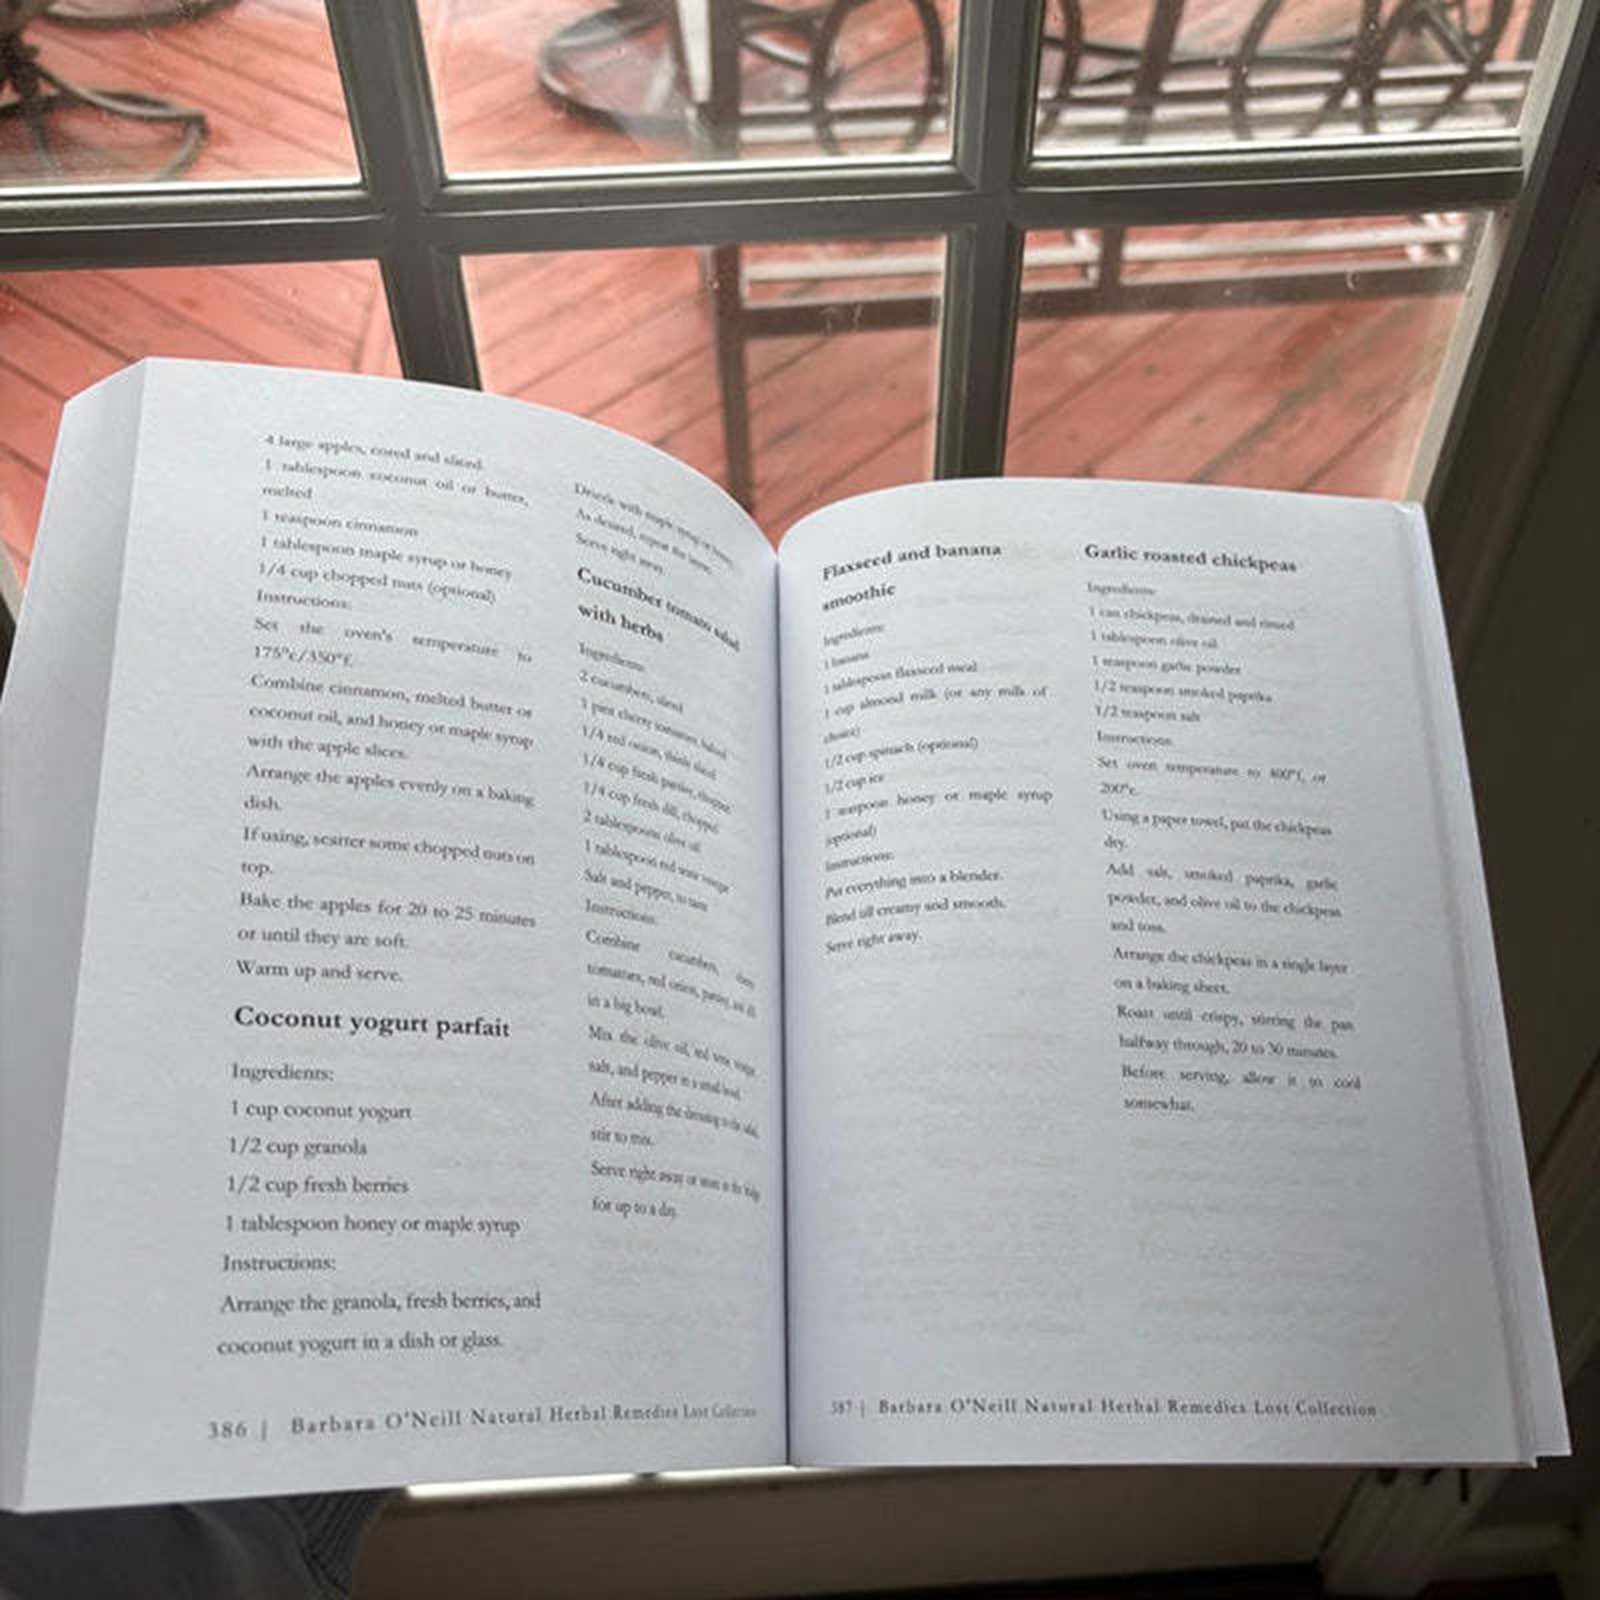 4 large apples, cored and sliced
1 tablespoon coconut oil or butter,
melted
1 teaspoon cinnamon
1 tablespoon maple syrup or honey
1/4 cup chopped nuts (optional)
Instructions:
Set the oven's temperature to
175°c/350°f.
Combine cinnamon, melted butter or
coconut oil, and honey or maple syrup
with the apple slices.
Arrange the apples evenly on a baking
dish.
If using, scatter some chopped nuts on
top.
Bake the apples for 20 to 25 minutes
or until they are soft.
Warm up and serve.
Coconut yogurt parfait
Ingredients:
1 cup coconut yogurt
1/2 cup granola
1/2 cup fresh berries
1 tablespoon honey or maple syrup
Instructions:
Arrange the granola, fresh berries, and
coconut yogurt in a dish or glass.
Drizzle with maple syrup or honey.
As desired, repeat the layers.
Serve right away.
Cucumber tomato salad
with herbs
Ingredients:
2 cucumbers, sliced
1 pint cherry tomatoes, halved
1/4 red onion, thinly sliced
1/4 cup fresh parsley, chopped
1/4 cup fresh dill, chopped
2 tablespoons olive oil
1 tablespoon red wine vinegar
Salt and pepper, to taste
Instructions:
Combine cucumbers, cherry
tomatoes, red onion, parsley, and dill
in a big bowl.
Mix the olive oil, red wine vinegar,
salt, and pepper in a small bowl.
After adding the dressing to the salad,
stir to mix.
Serve right away or store in the fridge
for up to a day.
386 | Barbara O'Neill Natural Herbal Remedies Lost Collection
Flaxseed and banana
smoothie
Ingredients:
1 banana
1 tablespoon flaxseed meal
1 cup almond milk (or any milk of
choice)
1/2 cup spinach (optional)
1/2 cup ice
1 teaspoon honey or maple syrup
(optional)
Instructions:
Put everything into a blender.
Blend till creamy and smooth.
Serve right away.
Garlic roasted chickpeas
Ingredients:
1 can chickpeas, drained and rinsed
1 tablespoon olive oil
1 teaspoon garlic powder
1/2 teaspoon smoked paprika
1/2 teaspoon salt
Instructions:
Set oven temperature to 400°f, or
200°c.
Using a paper towel, pat the chickpeas
dry.
Add salt, smoked paprika, garlic
powder, and olive oil to the chickpeas
and toss.
Arrange the chickpeas in a single layer
on a baking sheet.
Roast until crispy, stirring the pan
halfway through, 20 to 30 minutes.
Before serving, allow it to cool
somewhat.
387 | Barbara O'Neill Natural Herbal Remedies Lost Collection